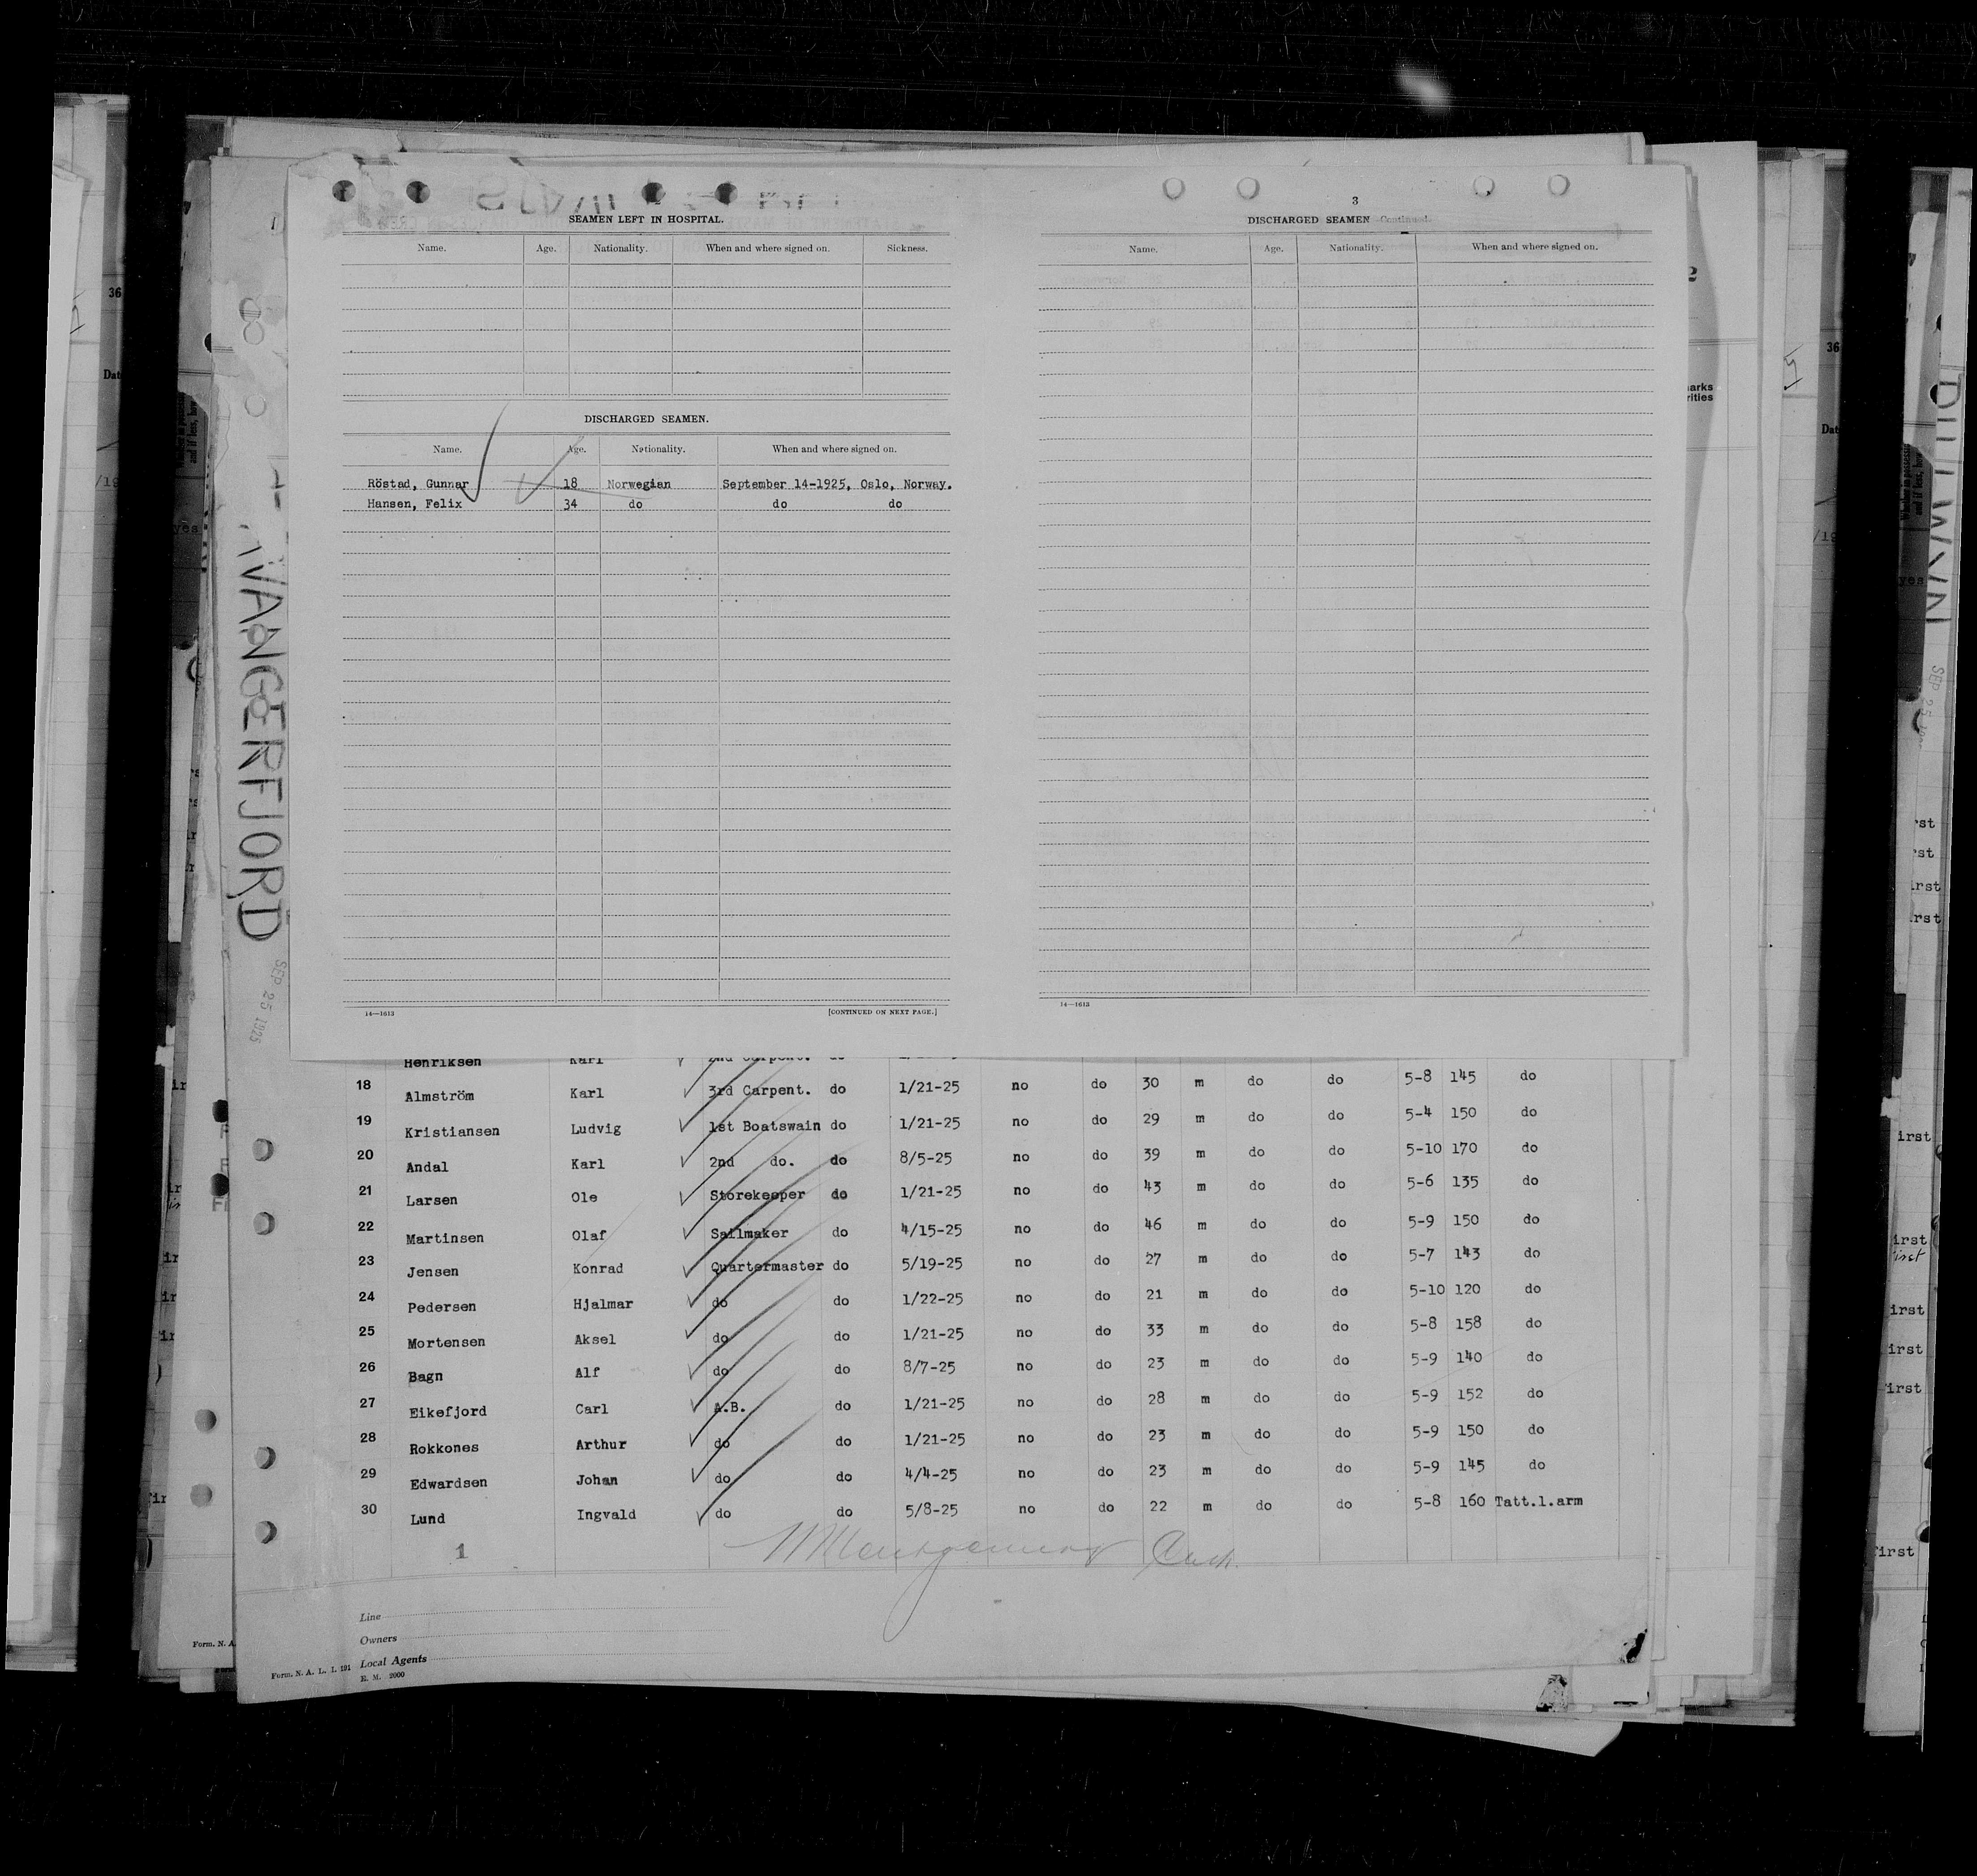 SEAMEN LEFT IN HOSPITAL.
Name. Age. Nationality. When and where signed on. Sickness.
DISCHARGED SEAMEN.
Name. Age. Nationality. When and where signed on.
Röstad, Gunnar 18 Norwegian September 14-1925, Oslo, Norway.
Hansen, Felix 34 do do do
14—1613 [CONTINUED ON NEXT PAGE.]
3
DISCHARGED SEAMEN—Continued.
Name. Age. Nationality. When and where signed on.
14—1613
VANGERFJORD
SEP 25 1925
Henriksen Karl 2nd Carpent. do
18 Almström Karl 3rd Carpent. do 1/21-25 no do 30 m do do 5-8 145 do
19 Kristiansen Ludvig 1st Boatswain do 1/21-25 no do 29 m do do 5-4 150 do
20 Andal Karl 2nd do. do 8/5-25 no do 39 m do do 5-10 170 do
21 Larsen Ole Storekeeper do 1/21-25 no do 43 m do do 5-6 135 do
22 Martinsen Olaf Sailmaker do 4/15-25 no do 46 m do do 5-9 150 do
23 Jensen Konrad Quartermaster do 5/19-25 no do 27 m do do 5-7 143 do
24 Pedersen Hjalmar do do 1/22-25 no do 21 m do do 5-10 120 do
25 Mortensen Aksel do do 1/21-25 no do 33 m do do 5-8 158 do
26 Bagn Alf do do 8/7-25 no do 23 m do do 5-9 140 do
27 Eikefjord Carl A.B. do 1/21-25 no do 28 m do do 5-9 152 do
28 Rokkones Arthur do do 1/21-25 no do 23 m do do 5-9 150 do
29 Edwardsen Johan do do 4/4-25 no do 23 m do do 5-9 145 do
30 Lund Ingvald do do 5/8-25 no do 22 m do do 5-8 160 Tatt.l.arm
1
Line
Owners
Local Agents
Form. N. A. L. I. 191 E. M. 2000
Form. N. A.
36
Dat
yes
36
Dat
yes
SEP 25
irst
irst
irst
irst
irst
irst